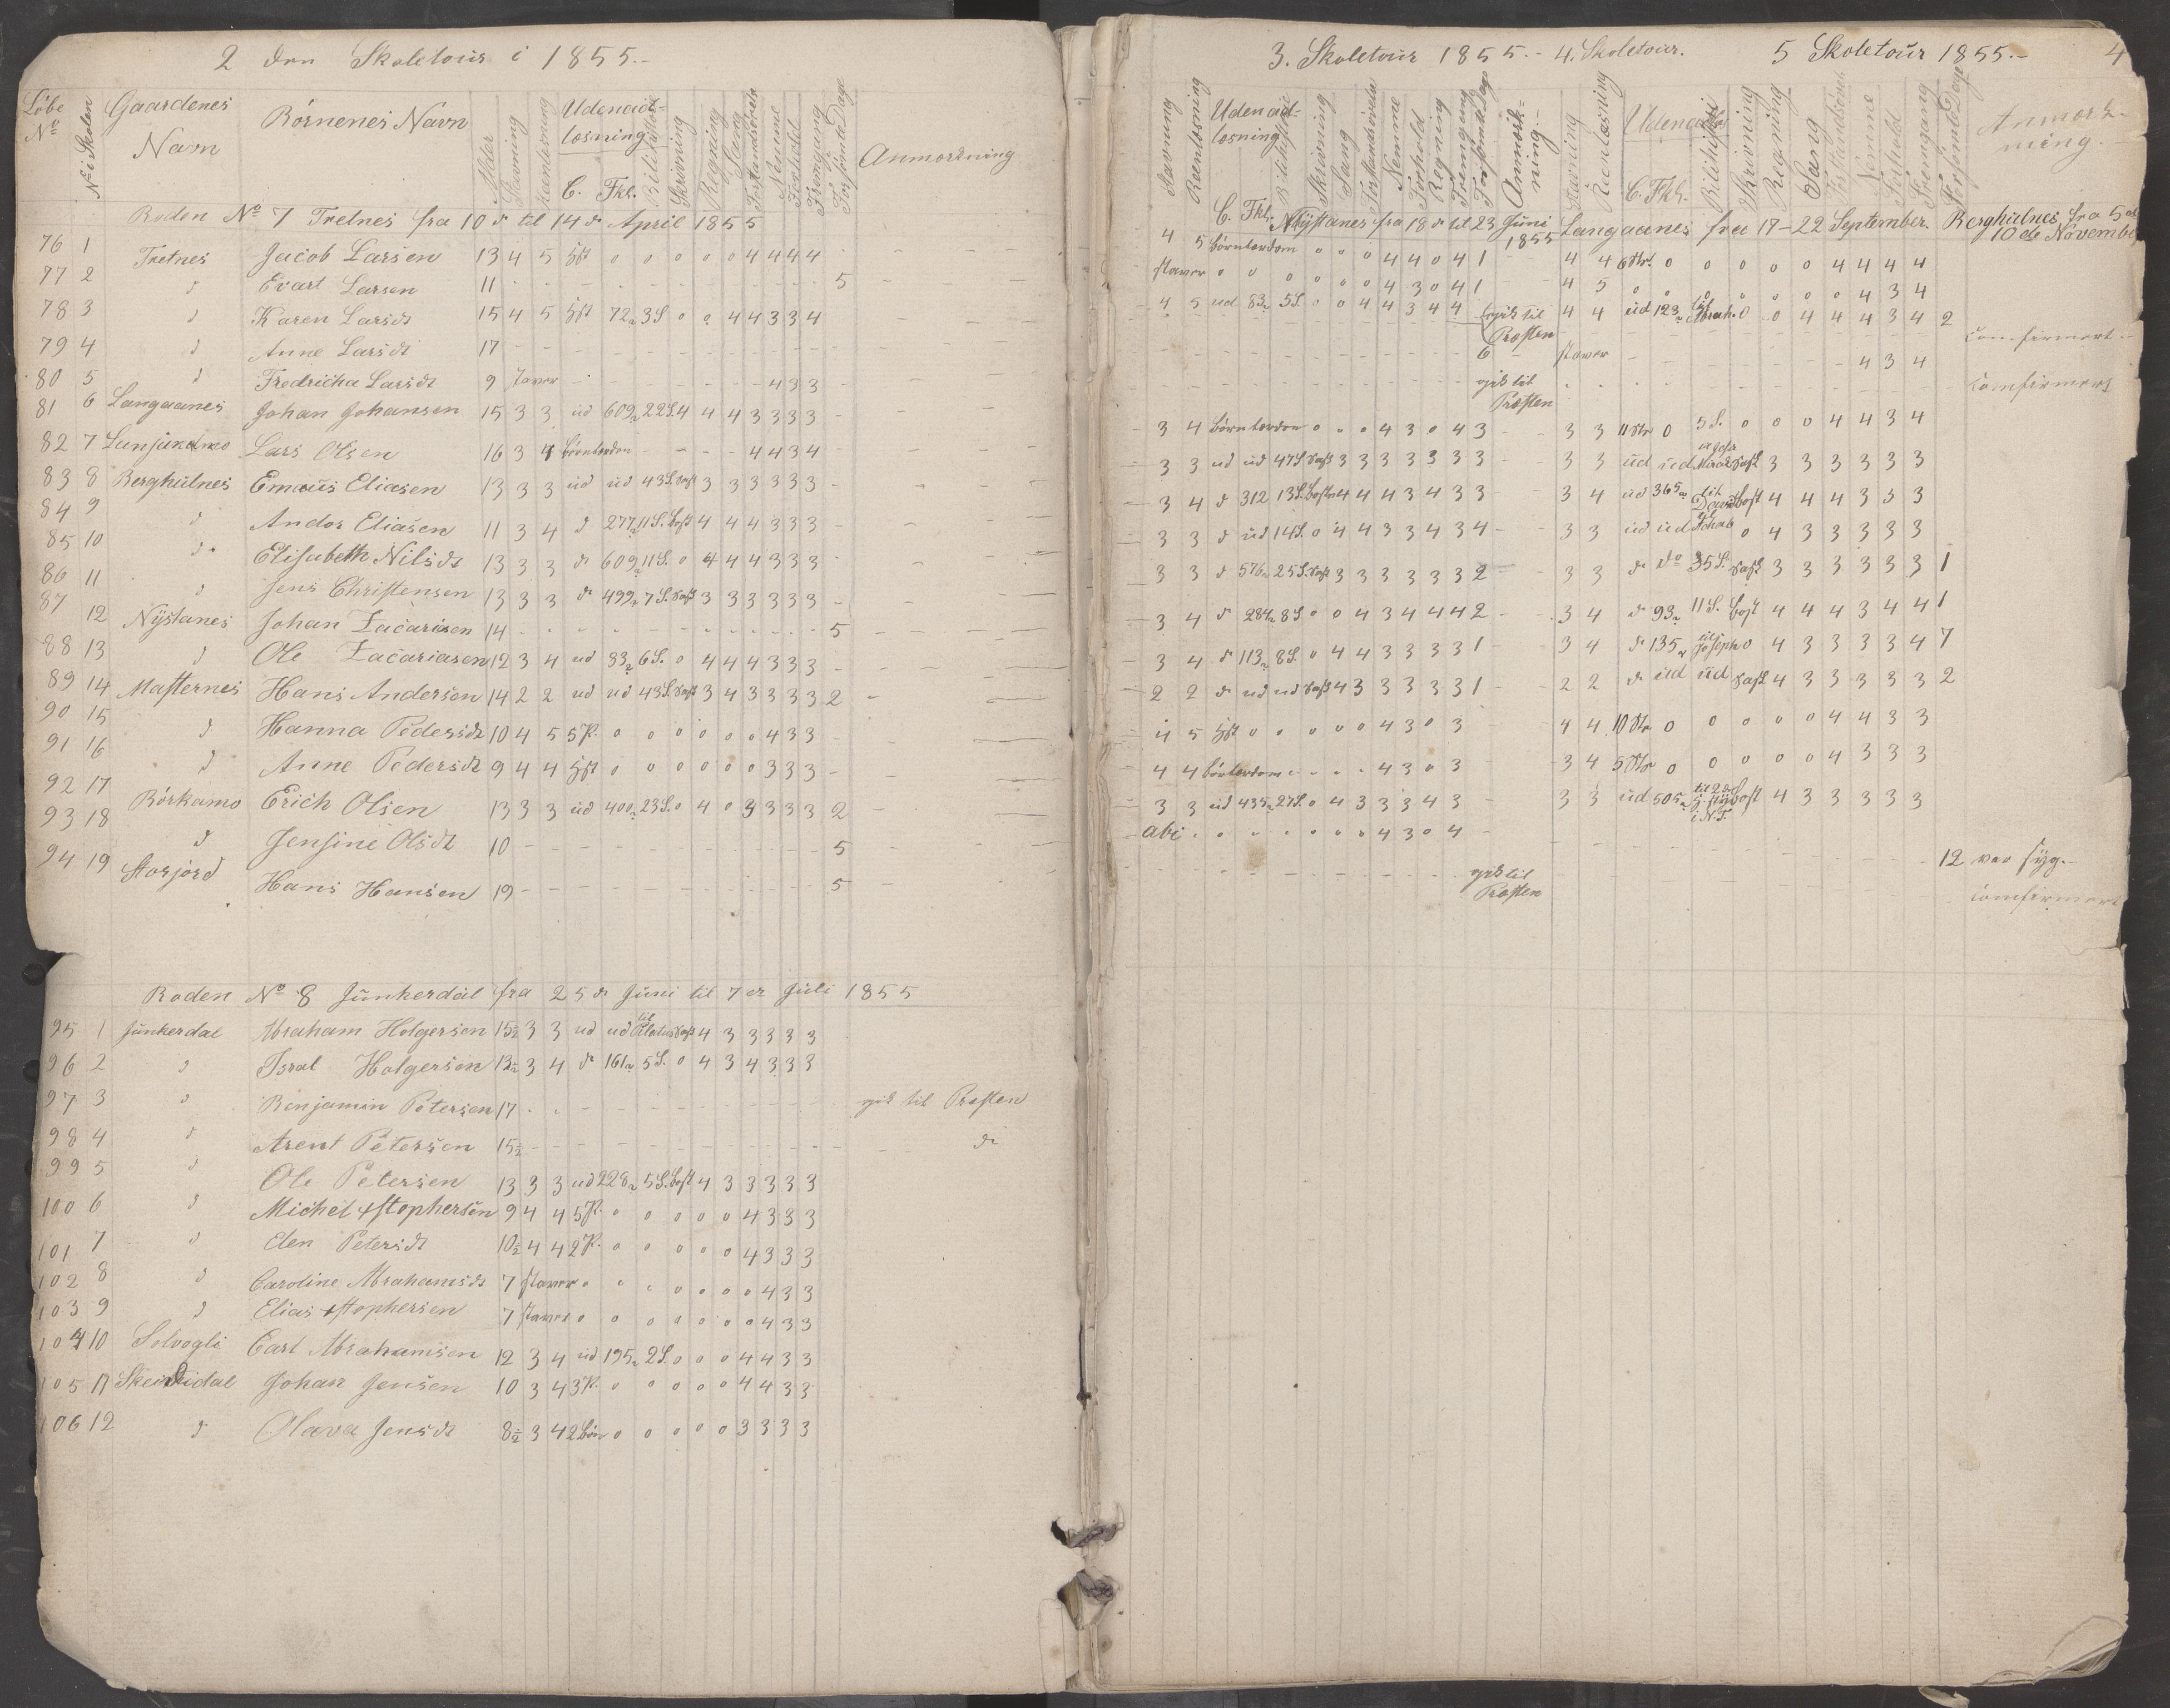 2 den Skoletour i 1855.-
Löbe No
No i Skolen
Gaardenes Navn
Börnenes Navn
Alder
Stavning
Reenlæsning
Udenad-læsning
C. Fkl.
Bibelhistorie
Skrivning
Regning
Sang
Forstandsövelse
Nemme
Forhold
Fremgang
Forsömte Dage
Anmærkning
Roden No 7 Tretnes fra 10 d til 14 d April 1855
76 1 Tretnes Jacob Larsen 13 4 5 o o o o o 4 4 4 4
77 2 d Evart Larsen 11 - - 5
78 3 d Karen Larsdt 15 4 5 72 3 S o o 4 4 3 3 4
79 4 d Anne Larsdt 17 - -
80 5 d Fredricha Larsdt 9 staver - - 4 3 3
81 6 Langaanes Johan Johansen 15 3 3 ud 609 22 S. 4 4 4 3 3 3 3
82 7 Lars Olsen 16 3 4 Börnlerdom - - 4 4 3 4
83 8 Berghulnes Emaus Eliasen 13 3 3 ud ud 43 S. 3 3 3 3 3 3
84 9 d Andor Eliasen 11 3 4 d 277 11 S. 4 4 4 3 3 3
85 10 d Elisabeth Nilsdt 13 3 3 d 609 11 S. o 4 4 4 3 3 3
86 11 d Jens Christensen 13 3 3 d 499 7 S. 3 3 3 3 3 3
87 12 Nystanes Johan Zacariasen 14 - - 5
88 13 d Ole Zacariasen 12 3 4 ud 83 6 S. o 4 4 4 3 3 3
89 14 Masternes Hans Andersen 14 2 2 ud ud 43 S. 3 4 3 3 3 3 2
90 15 d Hanna Pedersdt 10 4 5 5 P. o o o o o o 4 3 3
91 16 d Anne Pedersdt 9 4 4 o o o o o o 3 3 3
92 17 Börkamo Erich Olsen 13 3 3 ud 400 23 S. o 4 o 3 3 3 3 2
93 18 d Jensine Olsdt 10 - - 5
94 19 Storjord Hans Hansen 19 - - 5
Roden No 8 Junkerdal fra 25 d Juni til 7 er Juli 1855
95 1 Junkerdal Abraham Holgersen 15½ 3 3 ud ud til Pilatus 4 3 3 3 3 3
96 2 d Isral Holgersen 12½ 3 4 d 161 5 S. o 4 3 4 3 3 3
97 3 d Benjamin Petersen 17 - - gik til Præsten
98 4 d Arent Petersen 15½ - - d
99 5 d Ole Petersen 13 3 3 ud 228 5 S. 4 3 3 3 3 3
100 6 d Michel +stophersen 9 4 4 5 P. o o o o o 4 3 3 3
101 7 d Elen Petersdt 10½ 4 4 2 P. o o o o o 4 3 3 3
102 8 d Caroline Abrahamsdt 7 staver o o o o o o o 4 3 3
103 9 d Elias +stophersen 7 staver o o o o o o o 4 3 3
104 10 Solvogli Carl Abrahamsen 12 3 4 ud 195 2 S. o o o 4 4 3 3
105 11 Johan Jensen 10 3 4 3 P. o o o o o 4 4 3 3
106 12 d Olava Jensdt 8½ 3 4 2 Bön o o o o o 3 3 3 3
3. Skoletour 1855.- 4. Skoletour. 5 Skoletour 1855.- 4
Stavning
Reenlæsning
Udenad-læsning
C. Fkl.
Bibelhistorie
Skrivning
Sang
Forstandsövelse
Nemme
Forhold
Regning
Fremgang
Forsömte Dage
Anmærk-ning.-
Stavning
Reenlæsning
Udenad
C. Fkl.
Bibelhistori
Skrivning
Regning
Sang
Forstandsövelse
Nemme
Forhold
Fremgang
Forsömte Dage
Anmærk-ning.-
Nystanes fra 18 d til 23 Juni 1855
Langaanes fra 17-22 September.
Berghulnes fra 5 d 10 de November
4 5 Börnlerdom o o o 4 4 o 4 1 4 4 6 Str. o o o o o 4 4 4 4
staver o o o o o o 4 3 o 4 1 4 5 o o o o o o o 4 3 4
4 5 ud 83 5 S. o o 4 4 3 4 4 gik til Præsten 4 4 ud 123 til Abrah. o o 4 4 4 3 4 2
6 staver - - 4 3 4 Comfirmert.-
gik til Præsten Comfirmert
3 4 Börnlerdom o o o 4 3 o 4 3 3 3 11 Str o 5 S. o o o 4 4 3 4
3 3 ud ud 47 S. 3 3 3 3 3 3 3 3 3 ud ud 3 3 3 3 3 3
3 4 d 312 13 S. 4 4 4 3 4 3 3 3 4 ud 365 til David 4 4 4 3 3 3
3 3 d ud 14 S. o 4 4 3 3 4 3 4 3 3 ud ud o 4 3 3 3 3 3
3 3 d 576 25 S. 3 3 3 3 3 3 2 3 3 d do 35 S. 3 3 3 3 3 3 1
3 4 d 284 8 S o o 4 3 4 4 4 2 3 4 d 93 11 S. 4 4 4 3 4 4 1
3 4 d 113 8 S. o 4 4 3 3 3 3 1 3 4 d 135 til Joseph o 4 3 3 3 3 4 7
2 2 d ud ud 4 3 3 3 3 3 1 2 2 d ud ud 4 3 3 3 3 3 2
4 5 o o o o o 4 3 o 3 4 4 10 Str o o o o o 4 4 3 3
4 4 Börlerdom 4 3 o 3 3 4 5 Str o o o o o 4 3 3 3
3 3 ud 435 27 S. o 4 3 3 3 4 3 3 3 ud 505 i N.T. 4 3 3 3 3 3
abc o o o o o o o 4 3 o 4 12 var syg.-
gik til Præsten Comfirmert